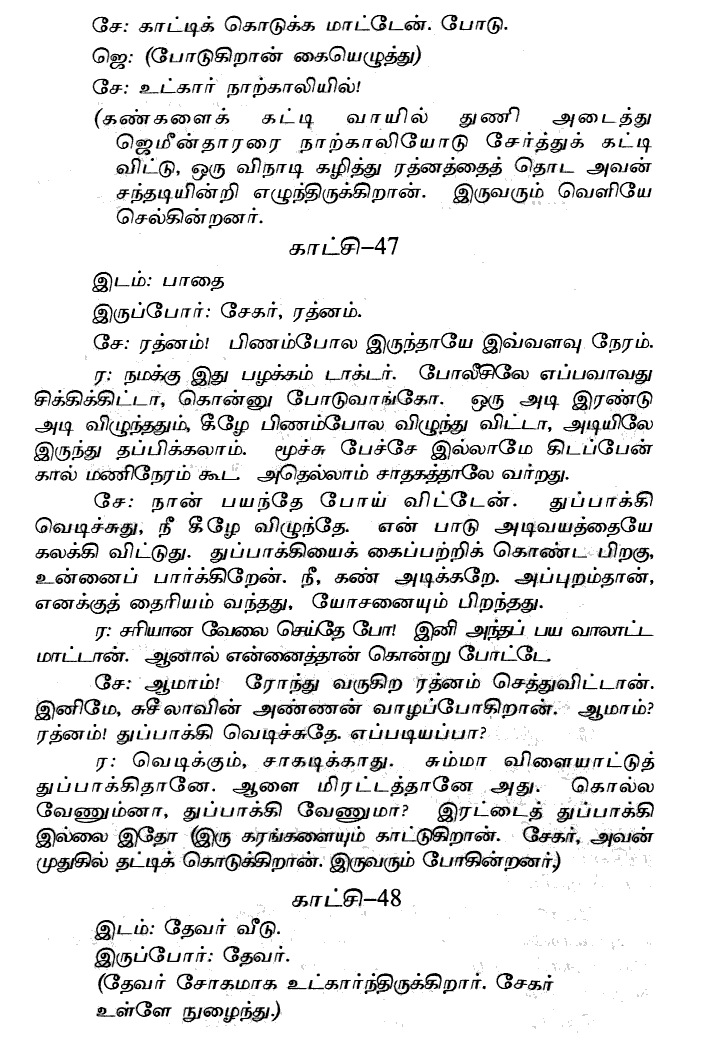 சே: காட்டிக் கொடுக்க மாட்டேன். போடு.
ஜெ: (போடுகிறான் கையெழுத்து)
சே: உட்கார் நாற்காலியில்!
(கண்களைக் கட்டி வாயில் துணி அடைத்து
ஜெமீன்தாரரை நாற்காலியோடு சேர்த்துக் கட்டி
விட்டு, ஒரு விநாடி கழித்து ரத்னத்தைத் தொட அவன்
சந்தடியின்றி எழுந்திருக்கிறான். இருவரும் வெளியே
செல்கின்றனர்.
காட்சி–47
இடம்: பாதை
இருப்போர்: சேகர், ரத்னம்.
சே: ரத்னம்! பிணம்போல இருந்தாயே இவ்வளவு நேரம்.
ர: நமக்கு இது பழக்கம் டாக்டர். போலீசிலே எப்பவாவது
சிக்கிக்கிட்டா, கொன்னு போடுவாங்கோ. ஒரு அடி இரண்டு
அடி விழுந்ததும், கீழே பிணம்போல விழுந்து விட்டா, அடியிலே
இருந்து தப்பிக்கலாம். மூச்சு பேச்சே இல்லாமே கிடப்பேன்
கால் மணிநேரம் கூட. அதெல்லாம் சாதகத்தாலே வர்றது.
சே: நான் பயந்தே போய் விட்டேன். துப்பாக்கி
வெடிச்சுது, நீ கீழே விழுந்தே. என் பாடு அடிவயத்தையே
கலக்கி விட்டுது. துப்பாக்கியைக் கைப்பற்றிக் கொண்ட பிறகு,
உன்னைப் பார்க்கிறேன். நீ, கண் அடிக்கறே. அப்புறம்தான்,
எனக்குத் தைரியம் வந்தது, யோசனையும் பிறந்தது.
ர: சரியான வேலை செய்தே போ! இனி அந்தப் பய வாலாட்ட
மாட்டான். ஆனால் என்னைத்தான் கொன்று போட்டே.
சே: ஆமாம்! ரோந்து வருகிற ரத்னம் செத்துவிட்டான்.
இனிமே, சுசீலாவின் அண்ணன் வாழப்போகிறான். ஆமாம்?
ரத்னம்! துப்பாக்கி வெடிச்சுதே. எப்படியப்பா?
ர: வெடிக்கும், சாகடிக்காது. சும்மா விளையாட்டுத்
துப்பாக்கிதானே. ஆளை மிரட்டத்தானே அது. கொல்ல
வேணும்னா, துப்பாக்கி வேணுமா? இரட்டைத் துப்பாக்கி
இல்லை இதோ (இரு கரங்களையும் காட்டுகிறான். சேகர், அவன்
முதுகில் தட்டிக் கொடுக்கிறான். இருவரும் போகின்றனர்.)
காட்சி–48
இடம்: தேவர் வீடு.
இருப்போர்: தேவர்.
(தேவர் சோகமாக உட்கார்ந்திருக்கிறார். சேகர்
உள்ளே நுழைந்து.)